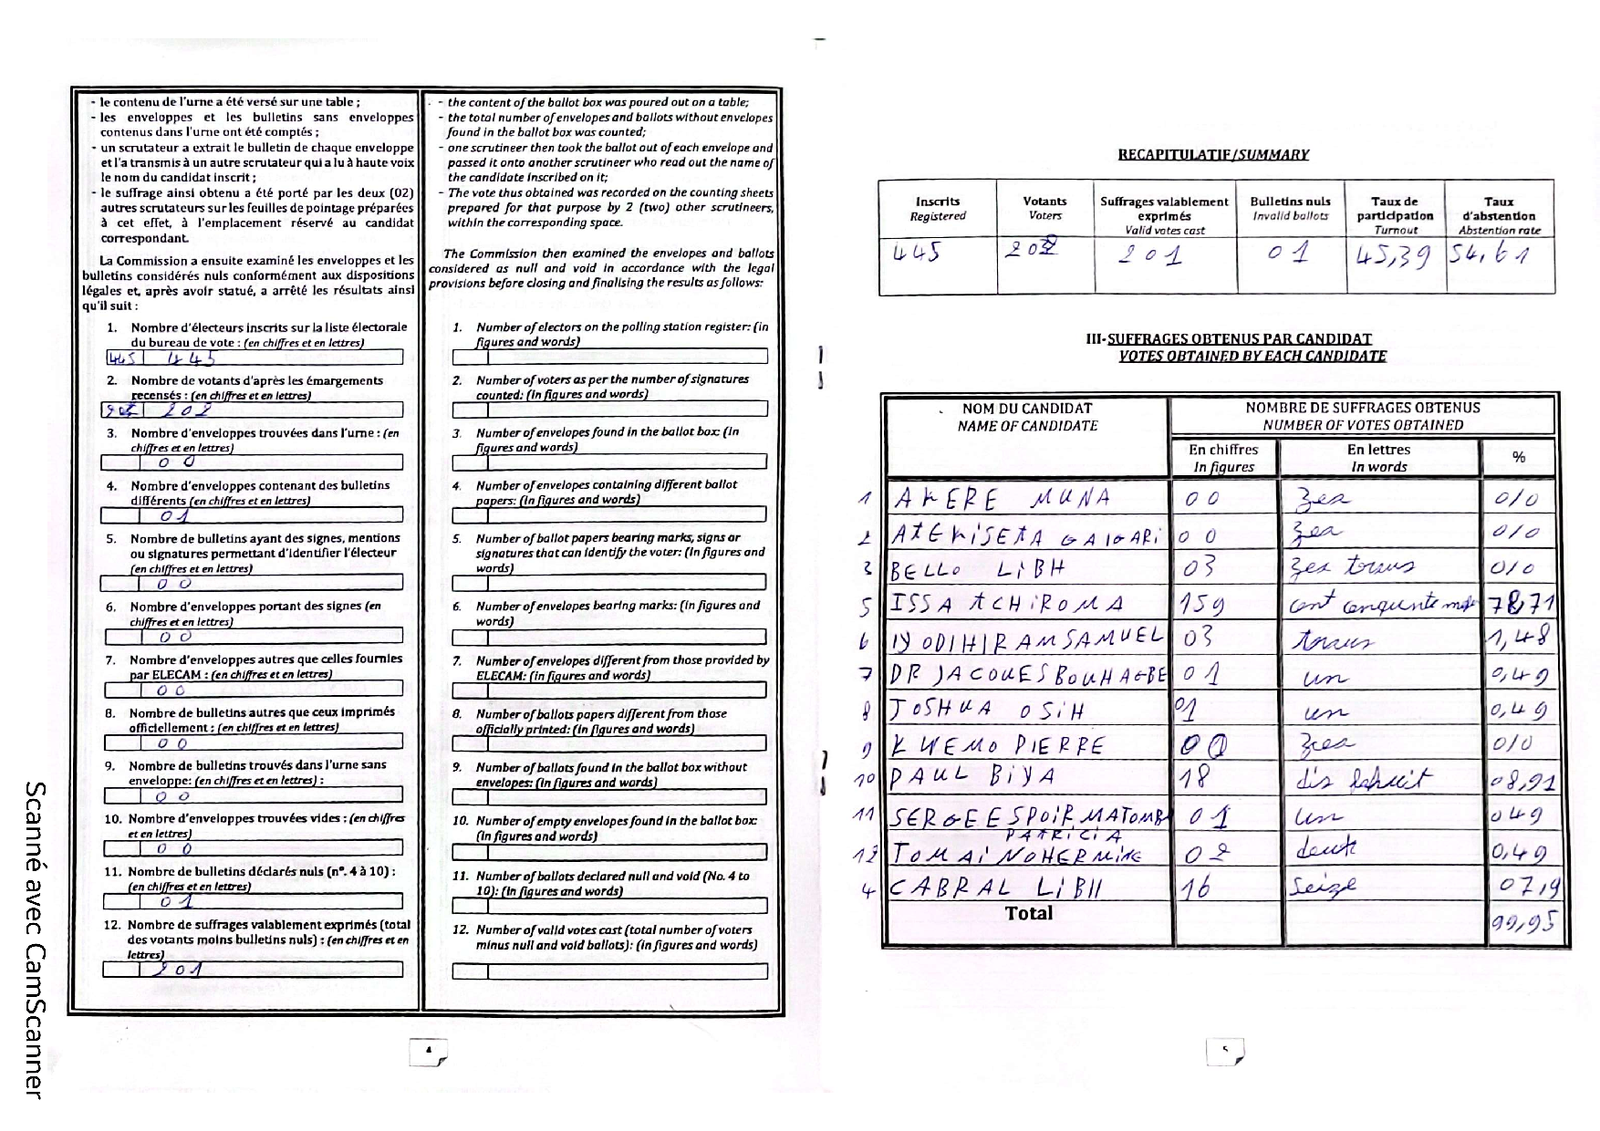 - le contenu de l'urne a été versé sur une table ;
- les enveloppes et les bulletins sans enveloppes
contenus dans l'urne ont été comptés ;
- un scrutateur a extrait le bulletin de chaque enveloppe
et l'a transmis à un autre scrutateur qui a lu à haute voix
le nom du candidat inscrit ;
- le suffrage ainsi obtenu a été porté par les deux (02)
autres scrutateurs sur les feuilles de pointage préparées
à cet effet, à l'emplacement réservé au candidat
correspondant.
La Commission a ensuite examiné les enveloppes et les
bulletins considérés nuls conformément aux dispositions
légales et, après avoir statué, a arrêté les résultats ainsi
qu'il suit :
1. Nombre d'électeurs inscrits sur la liste électorale
du bureau de vote : (en chiffres et en lettres)
445 445
2. Nombre de votants d'après les émargements
recensés : (en chiffres et en lettres)
202 202
3. Nombre d'enveloppes trouvées dans l'urne : (en
chiffres et en lettres)
00
4. Nombre d'enveloppes contenant des bulletins
différents (en chiffres et en lettres)
01
5. Nombre de bulletins ayant des signes, mentions
ou signatures permettant d'identifier l'électeur
(en chiffres et en lettres)
00
6. Nombre d'enveloppes portant des signes (en
chiffres et en lettres)
00
7. Nombre d'enveloppes autres que celles fournies
par ELECAM : (en chiffres et en lettres)
00
8. Nombre de bulletins autres que ceux imprimés
officiellement : (en chiffres et en lettres)
00
9. Nombre de bulletins trouvés dans l'urne sans
enveloppe: (en chiffres et en lettres) :
00
10. Nombre d'enveloppes trouvées vides : (en chiffres
et en lettres)
00
11. Nombre de bulletins déclarés nuls (n°. 4 à 10) :
(en chiffres et en lettres)
01
12. Nombre de suffrages valablement exprimés (total
des votants moins bulletins nuls) : (en chiffres et en
lettres)
201
- the content of the ballot box was poured out on a table;
- the total number of envelopes and ballots without envelopes
found in the ballot box was counted;
- one scrutineer then took the ballot out of each envelope and
passed it onto another scrutineer who read out the name of
the candidate inscribed on it;
- The vote thus obtained was recorded on the counting sheets
prepared for that purpose by 2 (two) other scrutineers,
within the corresponding space.
The Commission then examined the envelopes and ballots
considered as null and void in accordance with the legal
provisions before closing and finalising the results as follows:
1. Number of electors on the polling station register: (in
figures and words)
2. Number of voters as per the number of signatures
counted: (In figures and words)
3. Number of envelopes found in the ballot box: (In
figures and words)
4. Number of envelopes containing different ballot
papers: (In figures and words)
5. Number of ballot papers bearing marks, signs or
signatures that can identify the voter: (In figures and
words)
6. Number of envelopes bearing marks: (in figures and
words)
7. Number of envelopes different from those provided by
ELECAM: (in figures and words)
8. Number of ballots papers different from those
officially printed: (In figures and words)
9. Number of ballots found in the ballot box without
envelopes: (In figures and words)
10. Number of empty envelopes found in the ballot box:
(In figures and words)
11. Number of ballots declared null and void (No. 4 to
10): (In figures and words)
12. Number of valid votes cast (total number of voters
minus null and void ballots): (in figures and words)
4
RECAPITULATIF/SUMMARY
Inscrits
Registered
Votants
Voters
Suffrages valablement
exprimés
Valid votes cast
Bulletins nuls
Invalid ballots
Taux de
participation
Turnout
Taux
d'abstention
Abstention rate
445 202 201 01 45,39 54,61
III-SUFFRAGES OBTENUS PAR CANDIDAT
VOTES OBTAINED BY EACH CANDIDATE
NOM DU CANDIDAT
NAME OF CANDIDATE
NOMBRE DE SUFFRAGES OBTENUS
NUMBER OF VOTES OBTAINED
En chiffres
In figures
En lettres
In words
%
1 AKERE MUNA 00 0/0
2 00 0/0
3 BELLO LIBH 03 0/0
5 ISSA TCHIROMA 159 78,71
6 IYODIHIRAMSAMUEL 03 trois 1,48
7 DR JACQUES BOUHAGBE 01 un 0,49
8 JOSHUA OSIH 01 un 0,49
9 KWEMO PIERRE 00 0/0
10 PAUL BIYA 18 08,91
11 SERGE ESPOIR MATOMB 01 un 049
PATRICIA
12 TOMAINOHERMINE 02 0,49
4 CABRAL LIBII 16 seize 07,9
Total 99,95
5
Scanné avec CamScanner